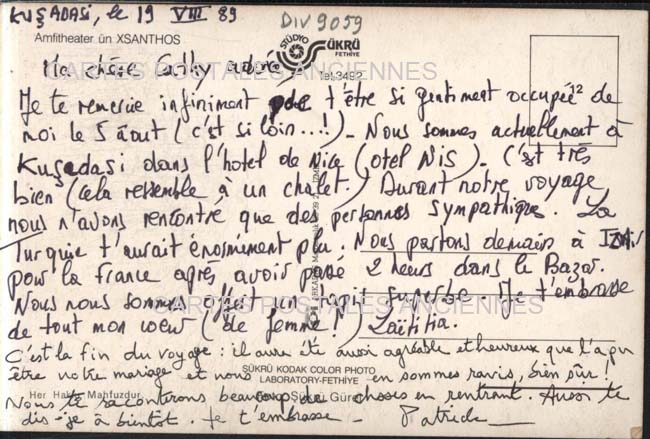 KUŞADASI, le 19 VIII 89
DIV 9059
Amfitheater ün XSANTHOS
STÜDYO ŞÜKRÜ
FETHİYE
Tel:3492
Ma chère Cathy adorée,
CARTES POSTALES ANCIENNES
Je te remercie infiniment de t'être si gentiment occupée de
12
moi le 5 août (c'est si loin...!)_ Nous sommes actuellement à
Kuşadasi dans l'hotel de Nice (otel Nis)_ C'est très
bien (cela ressemble à un chalet.) Durant notre voyage
nous n'avons rencontré que des personnes sympathiques. La
Turquie t'aurait énormément plu. Nous partons demain à Izmir
pour la france après avoir passé 2 heures dans le Bazar.
Nous nous sommes offert un tapis superbe. Je t'embrasse
CARTES POSTALES ANCIENNES
de tout mon coeur (de femme!) Laëtitia.
C'est la fin du voyage: il aura été aussi agréable et heureux que l'a pu
être notre mariage et nous en sommes ravis, bien sûr!
ŞÜKRÜ KODAK COLOR PHOTO
LABORATORY-FETHİYE
Her Hakkı Mahfuzdur
Nous te raconterons beaucoup de choses en rentrant. Aussi te
dis-je à bientôt. Je t'embrasse_ Patrick